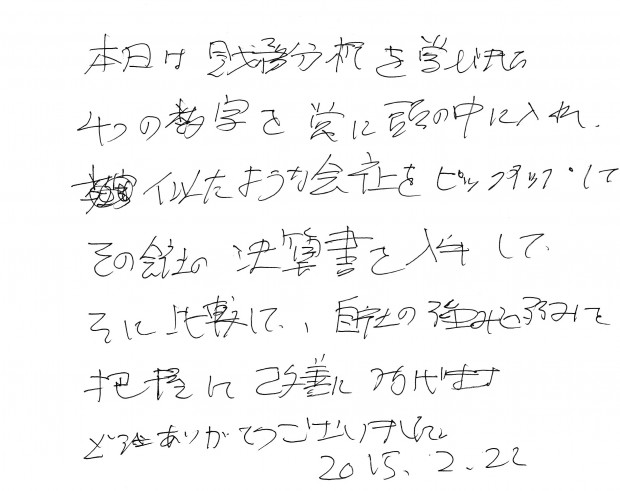 本日は財務分析を学び
4つの数字を常に頭の中に入れ、
似たような会社をピックアップして
その会社の決算書を入手して、
比較して、自社の強みと弱みを
把握し改善に
どうもありがとうございました。
2015.2.22